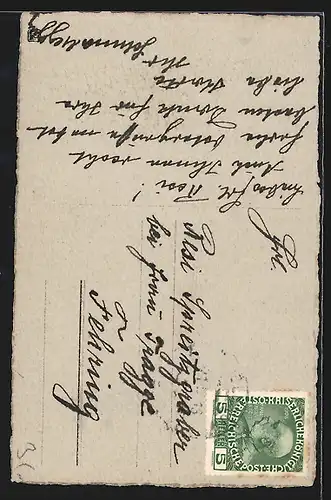 Liebes Frl. Resi!
Auch Ihnen recht
frohe Ostergrüße
besten Dank für Ihre
liebe Karte
Ihr
Frl.
Resi Spreitzgraber
bei Frau Fragge
Fehring
KAISERLICHE KÖNIGLICHE
ÖSTERREICHISCHE POST
5 HELLER 5